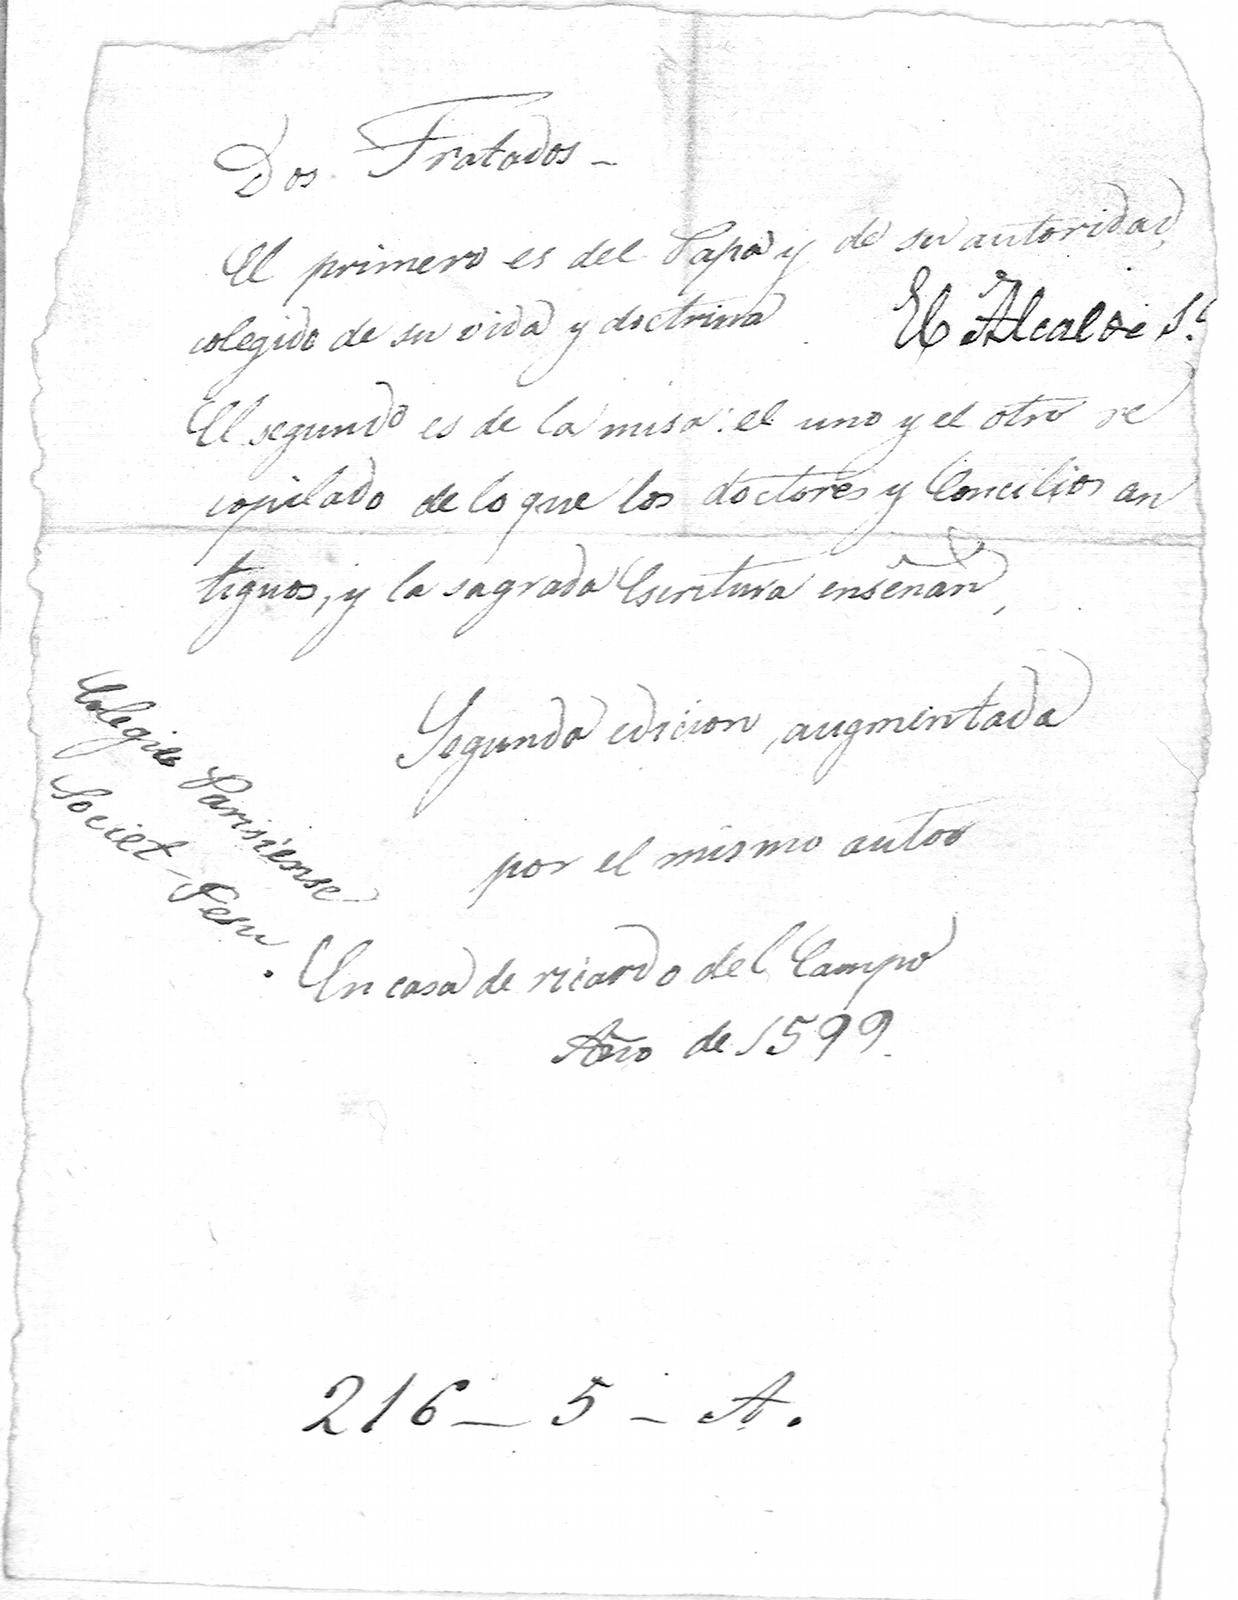 Dos Tratados -
El primero es del Papa y de su autoridad,
colegido de su vida y doctrina
El Alcalde
El segundo es de la misa: el uno y el otro re
copilado de lo que los doctores y Concilios an
tiguos, y la sagrada Escritura enseñan,
Segunda edicion, augmentada
por el mismo autor
Colegio Parisiense
Societ - Jesu.
En casa de ricardo del Campo
Año de 1599.
216 - 5 - A.